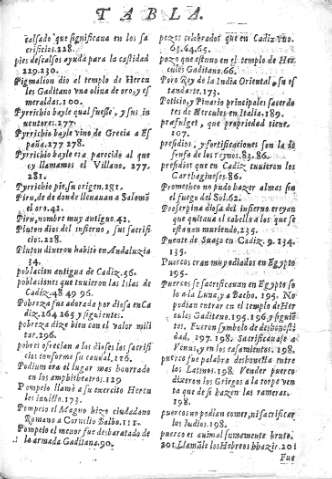 TABLA.
calsado que significaua en los sa
crificios. 228.
pies descalsos ayuda para la castidad
229. 230.
Pigmalion dio al templo de Hercu
les Gaditano vna oliua de oro, y es
meraldas. 100.
Pyrrichio bayle qual fuesse, y sus in
uentores. 277.
Pyrrichio bayle vino de Grecia a Es
paña. 277 278.
Pyrrichio bayle era parecido al que
oy llamamos el Villano. 277.
281.
Pyrrichio pie, su origen. 281.
Piro, de donde lleuauan a Salomõ
el oro. 42.
Piru, nombre muy antiguo. 42.
Pluton dios del infierno, sus sacrifi
cios. 228.
Pluton diuero habitò en Andaluzia
34.
poblacion antigua de Cadiz. 56.
poblaciones que tuuieron las Islas de
Cadiz. 48 49 96.
Pobreza fue adorada por diosa en Ca
diz. 264 265 y siguientes.
pobreza dize bien con el valor mili
tar. 296.
pobres ofrecian a los dioses los sacrifi
cios conforme su caudal. 126.
Podium era el lugar mas honrado
en los amphiteatros. 129
Pompeio llamò a su exercito Hercu
les inuicto. 173.
Pompeio el Magno hizo ciudadano
Romano a Cornelio Balbo. 111.
Pompeio el menor fue desbaratado de
la armada Gaditana. 90.
pozos celebrados que en Cadiz vuo.
63. 64. 65.
pozo que estuuo en el templo de Her
cules Gaditano. 66.
Poro Rey de la India Oriental, su es
tandarte. 173.
Poticio, y Pinario principales sacerdo
tes de Hercules en Italia. 189.
prasfulget, que propriedad tiene.
107.
presidios, y fortificaciones son la de
fensa de los reynos. 83. 86.
presidios que en Cadiz tuuieron los
Carthagineses. 86.
Prometheo no pudo hazer almas sin
el fuego del Sol. 62.
Proserpina diosa del infierno creyan
que quitaua el cabello a los que se
estauan muriendo. 235.
Puente de Suaço en Cadiz. 9. 134.
135.
Puercos eran muy odiados en Egypto
195.
Puercos se sacrificauan en Egypto so
lo a la Luna, y a Bacho. 195. No
podian entrar en el templo de Her
cules Gaditano. 195. 196. y siguiẽ
tes. Fueron symbolo de deshonesti
dad. 197. 198. Sacrificauase a
Venus, y en los casamientos. 198.
puerco fue palabra deshonesta entre
los Latinos. 198. Vender puerco
dixeron los Griegos a la torpe ven
ta que de si hazen las rameras.
198.
puercos no podian comer, ni sacrificar
los Iudios. 198.
puerco es animal sumamente bruto.
201. Llamale los Hebreos hhazir. 201
Fue